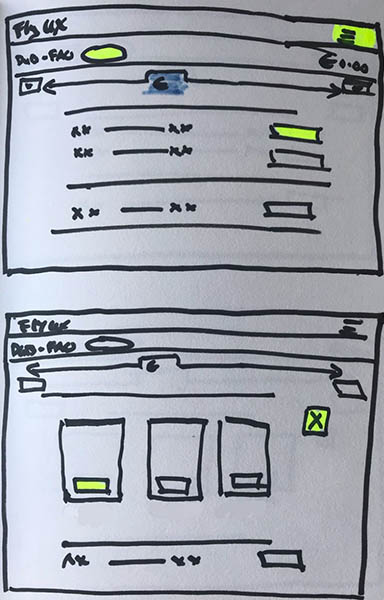 Fly UX
DUB-FAO €0.00
€
xx xx
xx xx
x x x x
FLY UX
DUB-FAO
€
X
xx xx